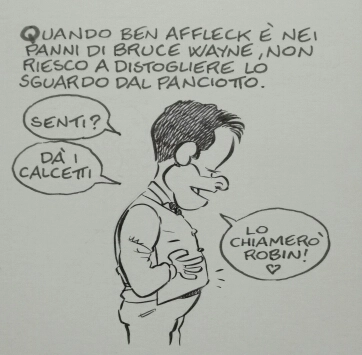 QUANDO BEN AFFLECK È NEI
PANNI DI BRUCE WAYNE, NON
RIESCO A DISTOGLIERE LO
SGUARDO DAL PANCIOTTO.
SENTI?
DÀ I
CALCETTI
LO
CHIAMERÒ
ROBIN!